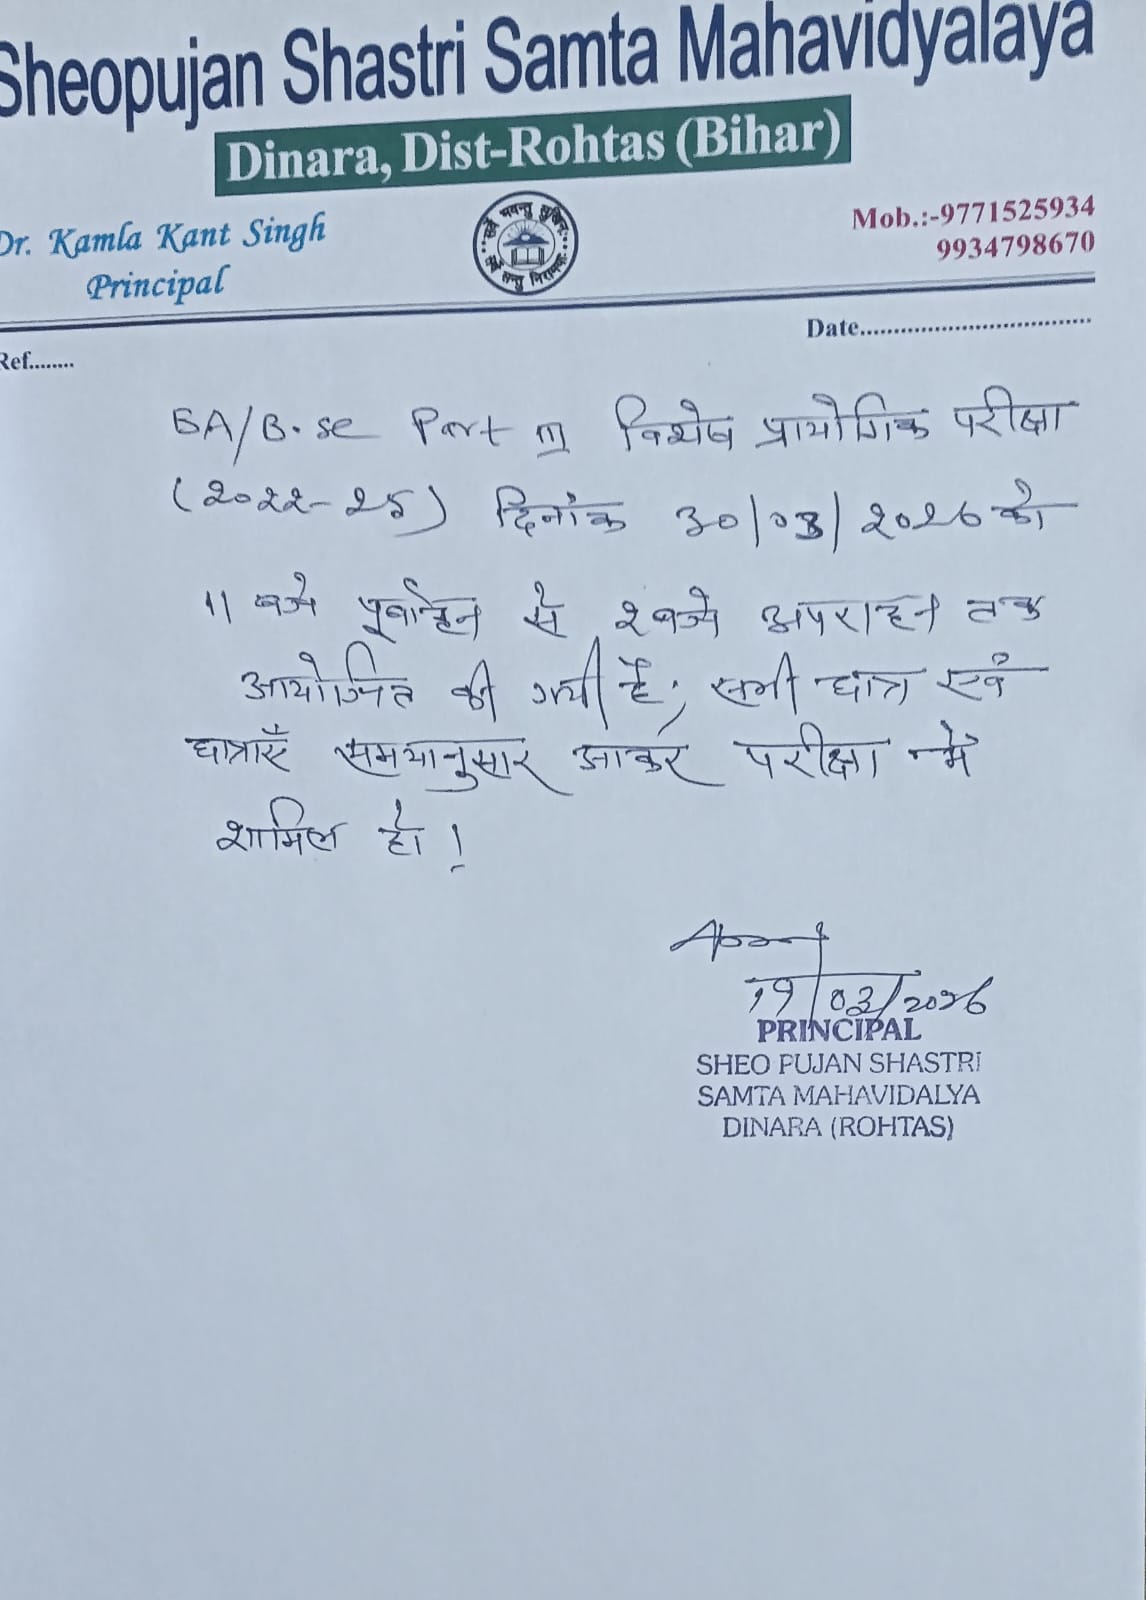 Sheopujan Shastri Samta Mahavidyalaya
Dinara, Dist-Rohtas (Bihar)
Dr. Kamla Kant Singh
Principal
सर्वे भवन्तु सुखिनः
सर्वे सन्तु निरामयाः
Mob.:-9771525934
9934798670
Date................................
Ref........
BA/B.sc Part III विशेष प्रायोगिक परीक्षा
(2022-25) दिनांक 30/03/2026 को
11 बजे पूर्वाहन से 2 बजे अपराहन तक
आयोजित की गयी है, सभी छात्र एवं
छात्राएँ समयानुसार आकर परीक्षा में
शामिल हो!
19/03/2026
PRINCIPAL
SHEO PUJAN SHASTRI
SAMTA MAHAVIDALYA
DINARA (ROHTAS)